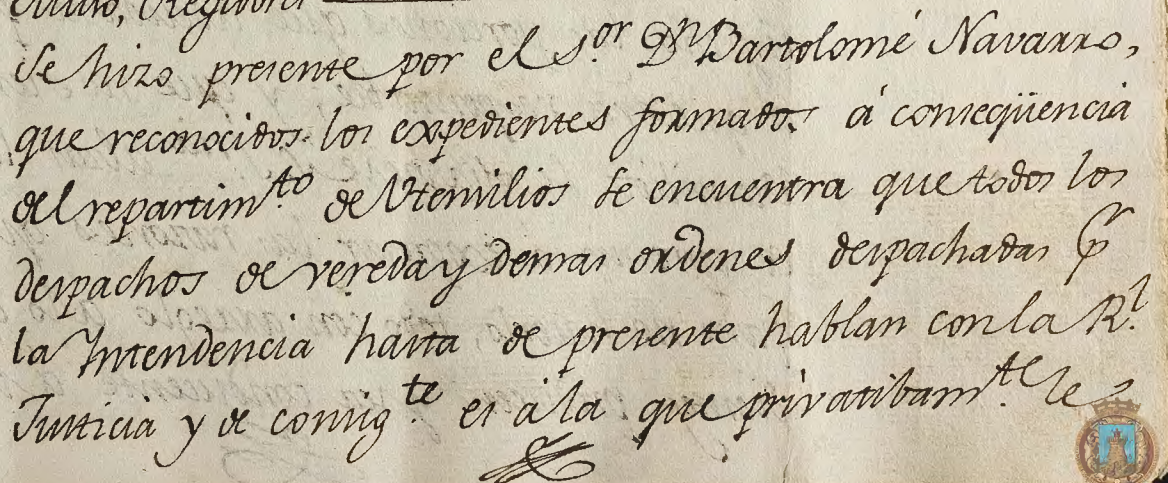 Regidores
Se hizo presente por el S.or Dn Bartolomé Navarro,
que reconocidos los expedientes formados á conseqüencia
del repartim.to de Utensilios se encuentra que todos los
despachos de vereda y demas ordenes despachadas p.r
la Intendencia hasta de presente hablan con la R.l
Justicia y de consig.te es á la que privatibam.te le